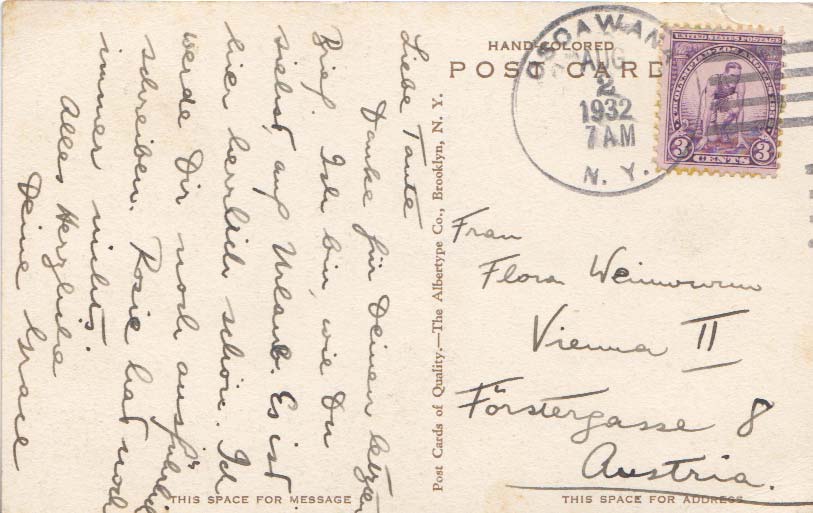 HAND-COLORED
POST CARD
OSCAWANA
AUG
2
1932
7 AM
N. Y.
UNITED STATES POSTAGE
3 CENTS 3
Liebe Tante
Danke für Deinen letzten
Brief. Ich bin, wie Du
siehst, auf Urlaub. Es ist
hier herrlich schön. Ich
werde Dir noch ausführlich
schreiben. Rosie hat noch
immer nichts.
Alles Herzliche
Deine Grace
Post Cards of Quality.—The Albertype Co., Brooklyn, N. Y.
Frau
Flora Weinwurm
Vienna II
Förstergasse 8
Austria.
THIS SPACE FOR MESSAGE
THIS SPACE FOR ADDRESS